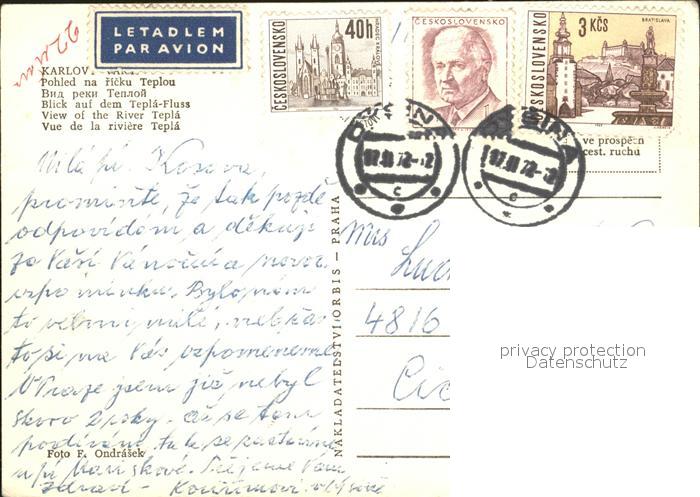 LETADLEM
PAR AVION
KARLOVY VARY
Pohled na říčku Teplou
Вид реки Теплой
Blick auf dem Teplá-Fluss
View of the River Teplá
Vue de la rivière Teplá
ČESKOSLOVENSKO
40h
ČESKOSLOVENSKO
ČESKOSLOVENSKO
3 KČS
BRATISLAVA
ve prospěch
cest. ruchu
Milá pí. Kosova,
promiňte, že tak pozdě
odpovídám a děkuji
za Vaší Vánoční a novor.
vzpomínku. Bylo nám
to velmi milé, neb často
si na Vás vzpomeneme
V Praze jsem již nebyl
skoro 2 roky. až se tam
podívám, tak se zastavíme
u pí
Přejeme Vám
zdraví -
Mrs
4816
NAKLADATELSTVÍ ORBIS — PRAHA
Foto F. Ondrášek
privacy protection
Datenschutz